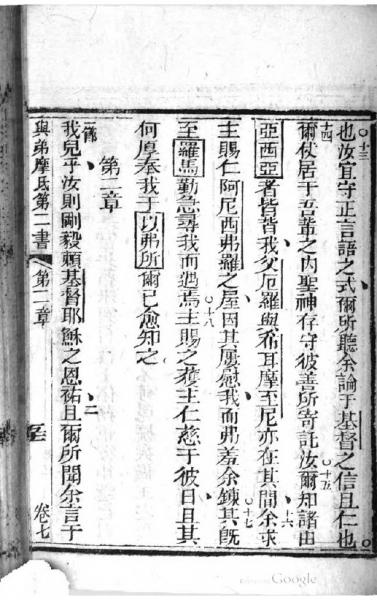 ○十三
也汝宜守正言語之式爾所聽余論于基督之信且仁也
十四
爾仗居于吾輩之內聖神存守彼善所寄託汝爾知諸由
○十五
亞西亞者皆背我父厄羅與希耳摩至尼亦在其間余求
十六
主賜仁阿尼西弗羅之屋因其屢慰我而弗羞余鍊其旣
○十七
至羅馬勤急尋我而遇焉主賜之獲主仁慈于彼日且其
○十八
何厚奉我于以弗所爾已愈知之
第二章
一節
我兒乎汝則剛毅賴基督耶穌之恩祐且爾所聞余言于
二
與弟摩氐第二書 第二章 卷七
Google